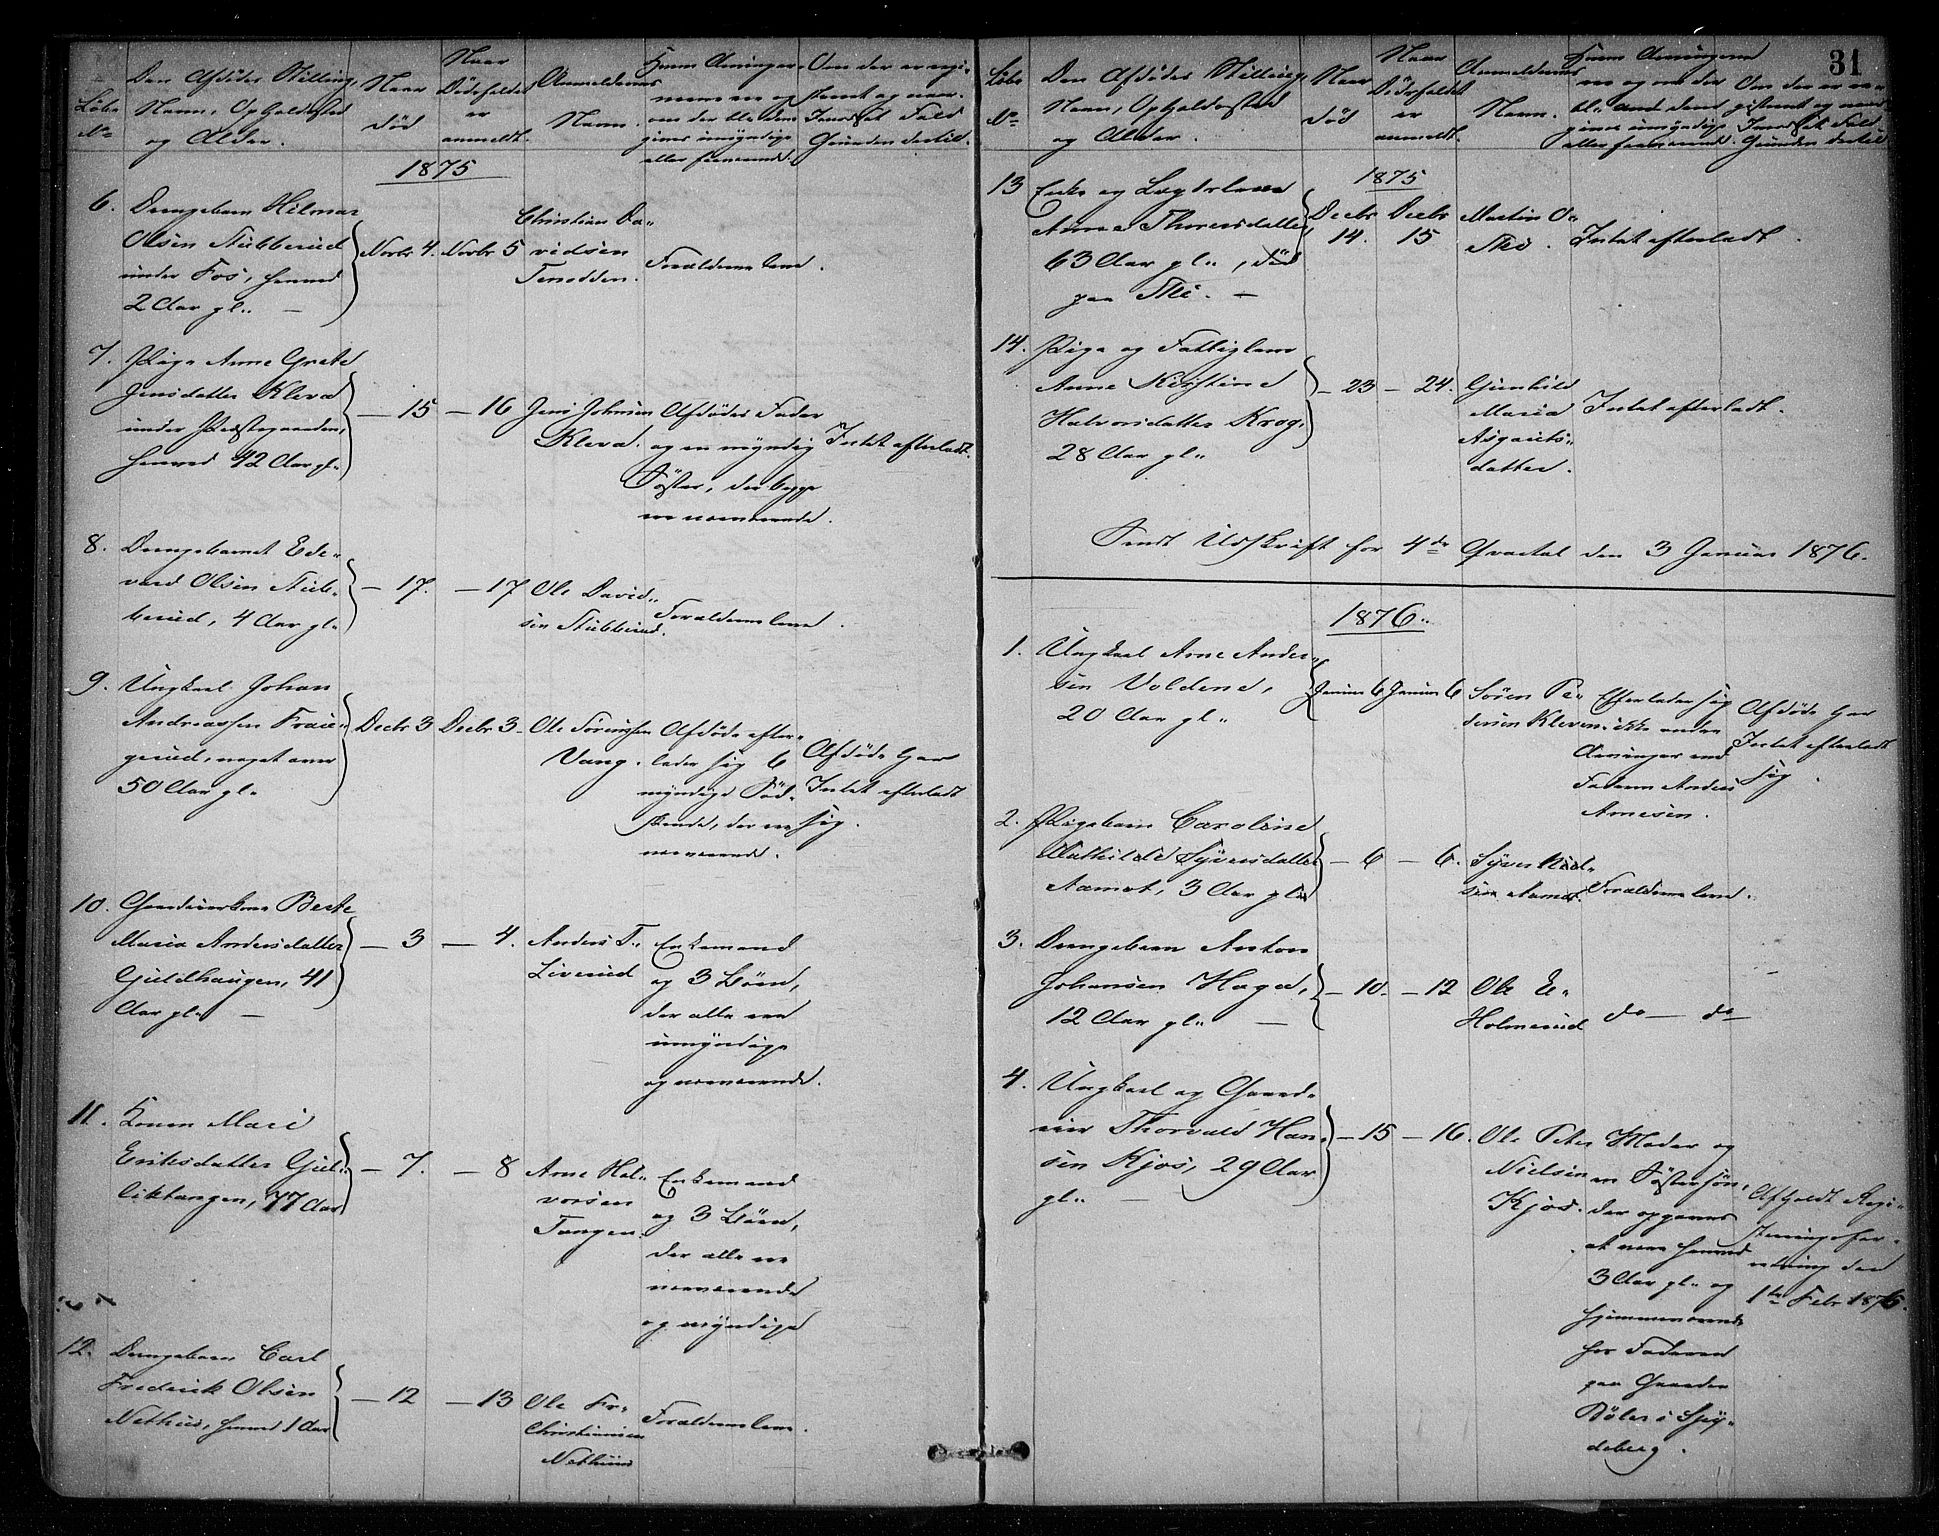 Løbe
No
Den Afdødes Stilling,
Navn, Opholdssted
og Alder.
Naar
død
Naar
Dødsfaldet
er
anmeldt.
Anmelderens
Navn.
Hvem Arvinger-
ne ere og
om der bl. dem
gives umyndige
eller fraværende.
Om der er regi-
streret og naar.
I modsat Fald
Grunden dertil.
1875
6. Drengebarn Hilmar
Olsen Stubberud
under Fos, henved
2 Aar gl.
Novbr 4.
Novbr 5
Christian Da-
vidsen
Tenodden.
Forældrene leve.
7. Pige Anne Grete
Jensdatter Kleva
under Præstegaarden,
henved 42 Aar gl.
— 15
— 16
Jens Johnsen
Kleva.
Afdødes Fader
og en myndig
Søster, der begge
ere nærværende.
Intet efterladt.
8. Drengebarnet Ed-
vard Olsen Stub-
berud, 4 Aar gl.
— 17.
— 17
Ole David-
sen Stubberud.
Forældrene leve.
9. Ungkarl Johan
Andreassen
noget over
50 Aar gl.
Decbr 3
Decbr 3
Ole Sørensen
Vang.
Afdøde efter-
lader sig 6
myndige Sød-
skende, der ere
nærværende.
Afdøde har
Intet efterladt
sig.
10. Gaardmandskone Berte
Maria Andersdatter
Guldhaugen, 41
Aar gl. —
— 3
— 4.
Anders T.
Liverud
Enkemand
og 3 Børn,
der alle ere
umyndige
og nærværende.
11. Konen Mari
Eriksdatter Gul-
liktangen, 77 Aar
— 7.
— 8
Arne Hal-
vorsen
Tangen.
Enkemand
og 3 Børn,
der alle ere
nærværende
og myndige
12. Drengebarn Carl
Fredrik Olsen
Nethus, henved 1 Aar
— 12
— 13
Ole Fr.
Christiansen
Nethus
Forældrene leve.
31
Løbe
No
Den Afdødes Stilling,
Navn, Opholdssted
og Alder.
Naar
død
Naar
Dødsfaldet
er
anmeldt.
Anmelderens
Navn.
Hvem Arvingerne
ere og om der
bl. dem
gives umyndige
eller fraværende.
Om der er re-
gistreret og naar
I modsat Fald
Grunden dertil
1875
13 Enke og Lægdslem
Anne Thoresdatter,
63 Aar gl., død
paa Ski. —
Decbr
14.
Decbr
15
Martin O.
Ski.
Intet efterladt.
14. Pige og Fattiglem
Anne Kirstine
Halvorsdatter Krog,
28 Aar gl.
— 23
— 24.
Gunhild
Maria
Asgauts-
datter.
Intet efterladt.
Sendt Udskrift for 4de Qvartal den 3 Januar 1876.
1876.
1. Ungkarl Arne Ander-
sen Voldene,
20 Aar gl.
Januar 6
Januar 6
Søren Pe-
dersen Kleven.
Efterlader sig
ikke andre
Arvinger end
Faderen Anders
Arnesen.
Afdøde har
Intet efterladt
sig.
2. Pigebarn Caroline
Mathilde Syversdatter
Aamot, 3 Aar gl.
— 6
— 6.
Syver Niel-
sen Aamot.
Forældrene leve.
3. Drengebarn Anton
Johansen Haga,
12 Aar gl. —
— 10.
— 12
Ole E.
Holmerud
do — do
4. Ungkarl og Gaard-
eier Thorvald Han-
sen Kjos, 29 Aar
gl. —
— 15
— 16.
Ole Peter
Nielsen
Kjos.
Moder og
en Søstersøn,
der opgaves
at være henved
3 Aar gl. og
hjemmeværende
hos Faderen
paa Gaarden
Bøler i Spy-
deberg.
Afholdt Regi-
streringsfor-
retning den
1ste Febr 1876.